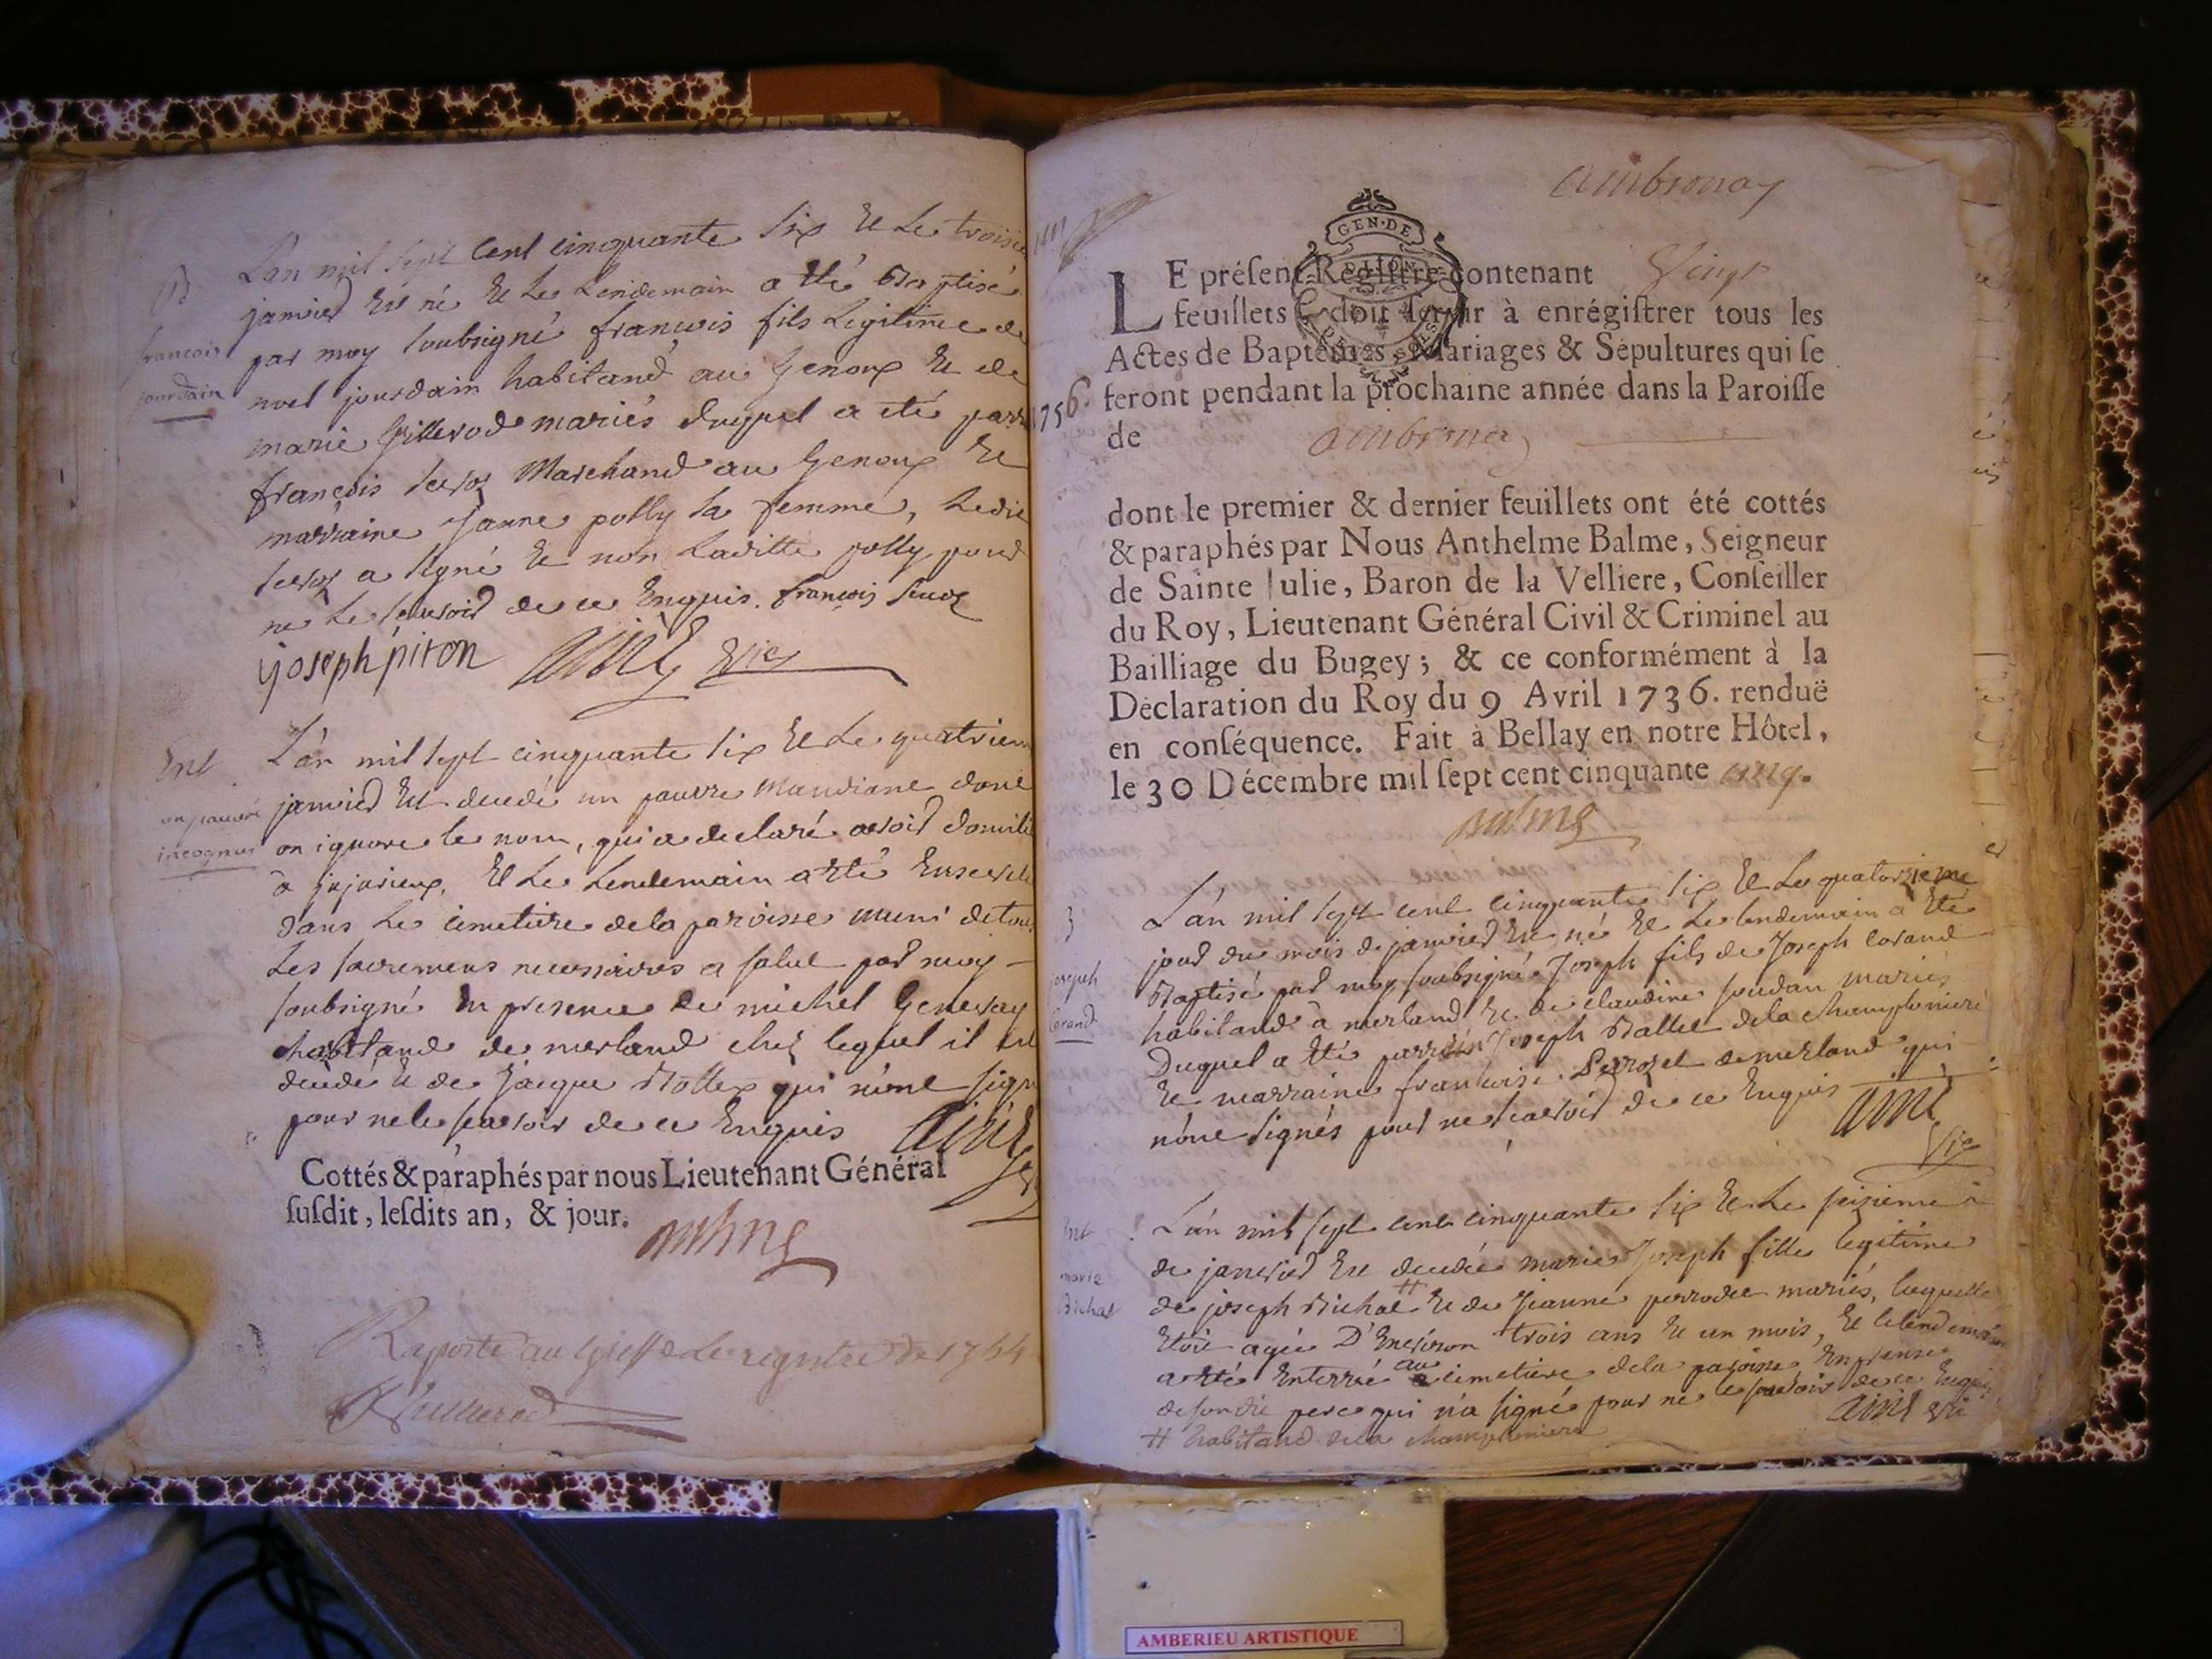 B
françois
jourdain
L'an mil sept cent cinquante six Et Le troisie
janvier Est né Et Le Lendemain a Eté Baptisé
par moy soubsigné françois fils Legitime de
noel jourdain habitand au Genoux Et de
marie Guillerod mariés duquel a eté parr
françois Marchand au Genoux Et
marraine Janne polly sa femme, Ledit
a signé Et non Laditte polly pour
ne Le sçauvoir de ce Enquis. françois
joseph piron Aimé Vic
Ent
un pauvre
incognus
L'an mil sept cinquante six Et Le quatriem
janvier Est decedé un pauvre Mandiant dont
on ignore le nom, qui a declaré avoir domicile
à jujurieux, Et Le Lendemain a Eté Enseveli
dans Le cimetiere de la paroisse muni de tous
Les sacremens necessaires a salut par moy
soubsigné En presence de michel Genevay
habitand de merland chez lequel il est
decedé Et de Jacque Bollex qui n'ont sign
pour ne le sçavoir de ce Enquis Aimé
Cottés & paraphés par nous Lieutenant Général
susdit, lesdits an, & jour.
Balme
Raporté au Greffe Le registre de 1764
ambronay
GEN. DE
DIJON
1756.
LE présent Registre contenant Vingt
feuillets & doit servir à enrégistrer tous les
Actes de Baptêmes, Mariages & Sépultures qui se
feront pendant la prochaine année dans la Paroisse
de ambronay
dont le premier & dernier feuillets ont été cottés
& paraphés par Nous Anthelme Balme, Seigneur
de Sainte Julie, Baron de la Velliere, Conseiller
du Roy, Lieutenant Général Civil & Criminel au
Bailliage du Bugey ; & ce conformément à la
Déclaration du Roy du 9 Avril 1736. renduë
en conséquence. Fait à Bellay en notre Hôtel,
le 30 Décembre mil sept cent cinquante cinq.
Balme
B
joseph
Corand
L'an mil sept cent cinquante six Et Le quatorzieme
jour du mois de janvier Est né Et Le lendemain a Eté
Baptisé par moy soubsigné Joseph fils de Joseph Corand
habitand à merland Et de claudine soudan mariés
Duquel a Eté parrain Joseph Ballet de la championiere
Et marraine francoise Perozet de merland qui
n'ont signés pour ne sçavoir de ce Enquis Aimé
Vic
Ent
marie
Bichat
L'an mil sept cent cinquante six Et Le seizieme
de janvier Est decedée marie Joseph fille legitime
de joseph Bichat # Et de Jeanne perrodet mariés, laquelle
Etoit agée D'Environ trois ans Et un mois, Et le lendemain
a eté Enterrée au cimetiere de la paroisse En presence
de sondit pere qui n'a signé pour ne le sçavoir de ce Enquis
# habitand de la championiere Aimé Vic
AMBERIEU ARTISTIQUE